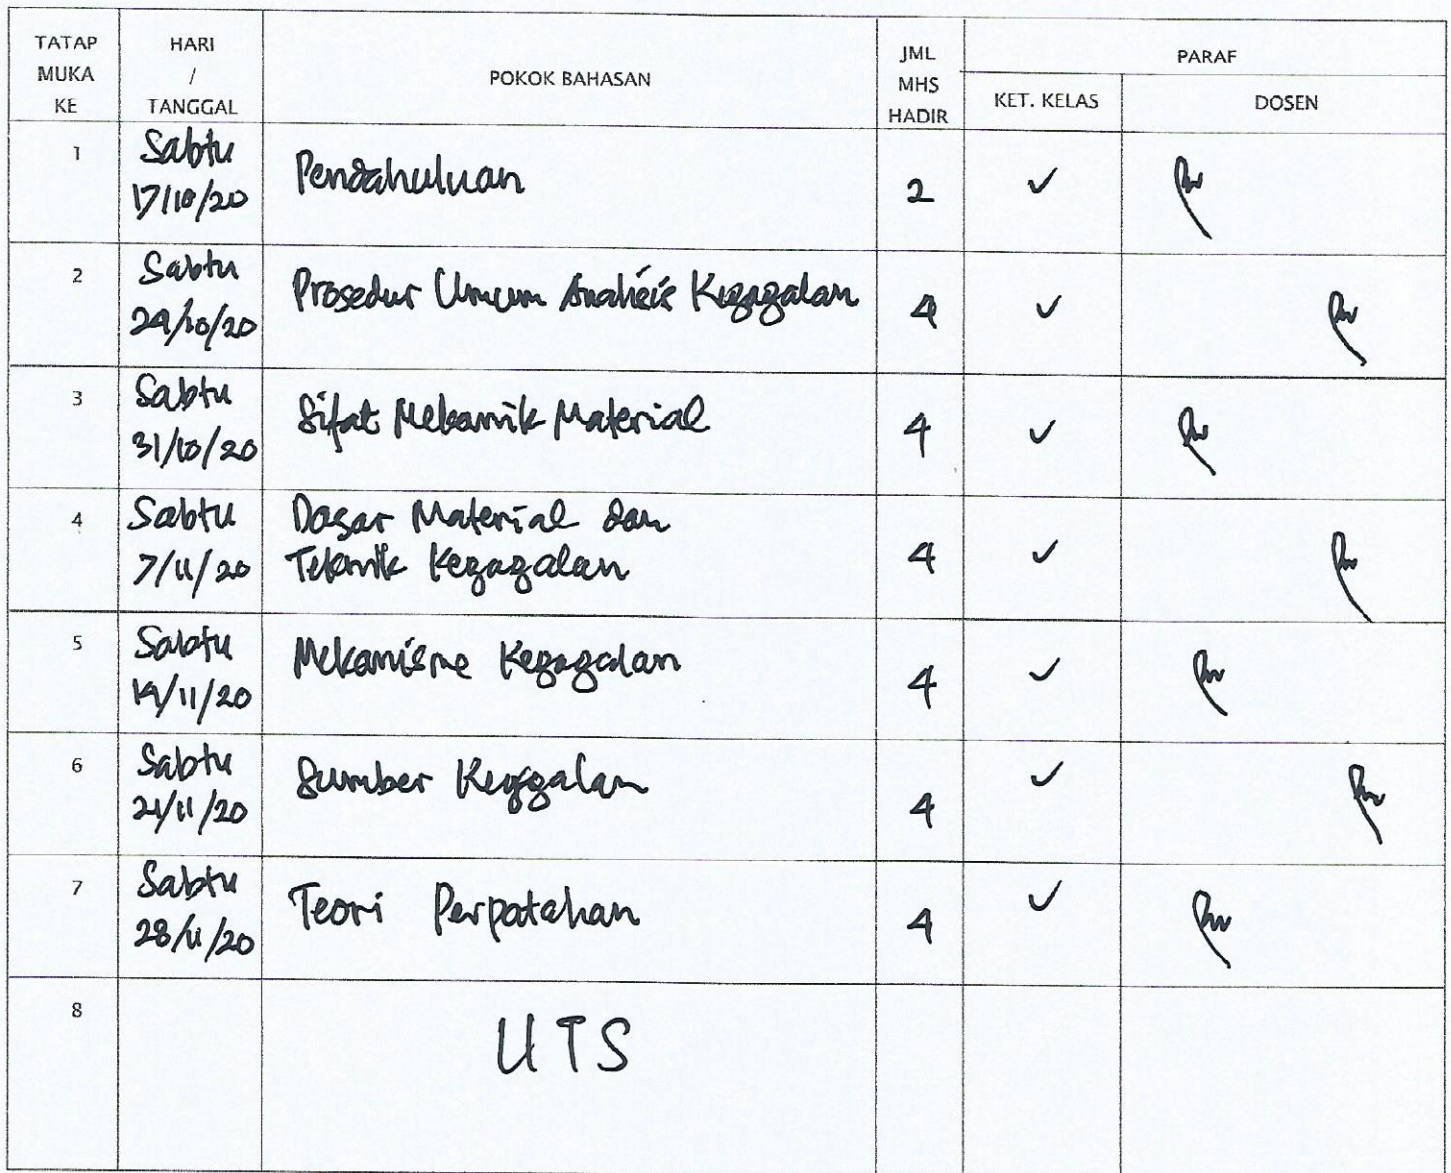 TATAP MUKA KE
HARI / TANGGAL
POKOK BAHASAN
JML MHS HADIR
PARAF
KET. KELAS
DOSEN
1 Sabtu 17/10/20 Pendahuluan 2 ✓
2 Sabtu 24/10/20 Prosedur Umum Analisis Kegagalan 4 ✓
3 Sabtu 31/10/20 Sifat Mekanik Material 4 ✓
4 Sabtu 7/11/20 Dasar Material dan Teknik Kegagalan 4 ✓
5 Sabtu 14/11/20 Mekanisme Kegagalan 4 ✓
6 Sabtu 21/11/20 Sumber Kegagalan 4 ✓
7 Sabtu 28/11/20 Teori Perpatahan 4 ✓
8 UTS